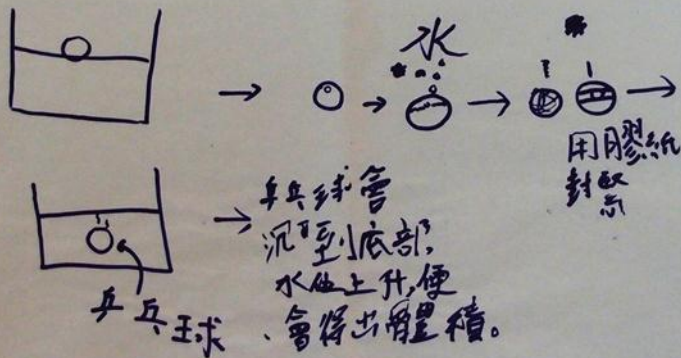 水
用膠紙
封緊
乒乓球會
沉到底部,
水位上升,便
會得出體積。
乒乓球